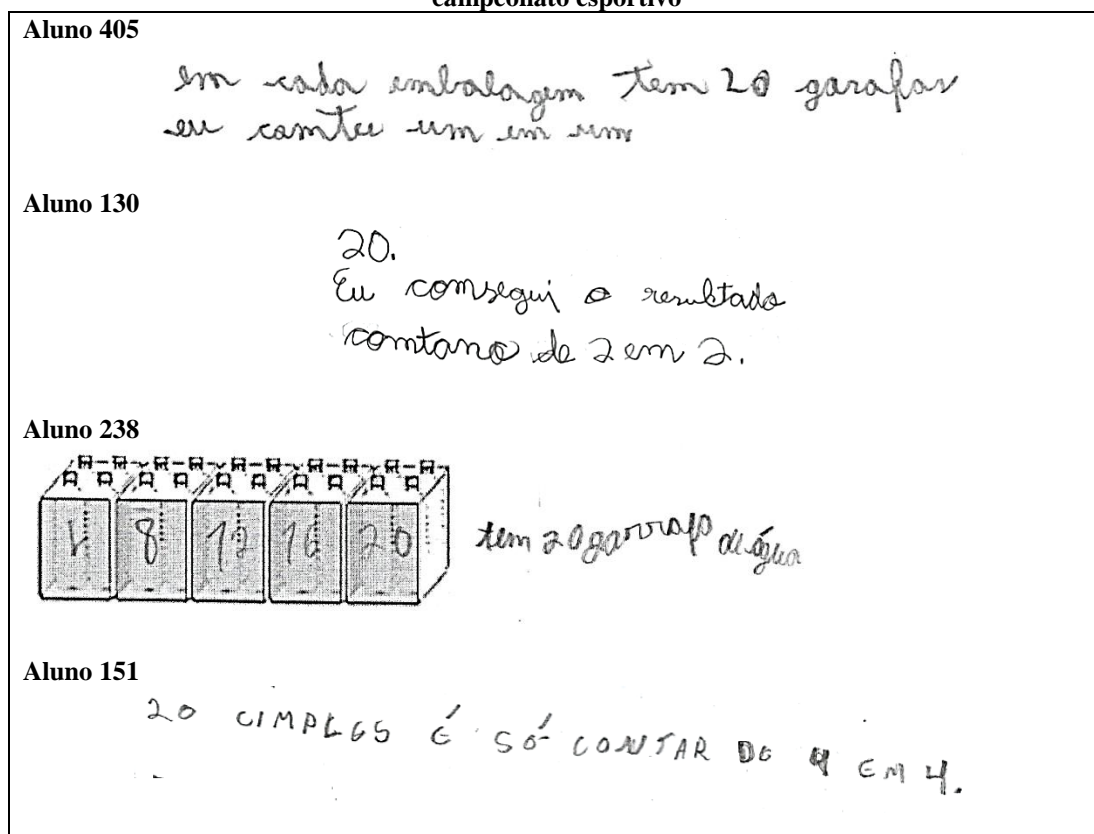 campeonato esportivo
Aluno 405
em cada embalagem tem 20 garafas
eu camtei um em um
Aluno 130
20.
Eu comsegui o resultado
comtano de 2 em 2.
Aluno 238
4 8 12 16 20
tem 20 garrafa de água
Aluno 151
20 CIMPLES É SÓ CONTAR DE 4 EM 4.